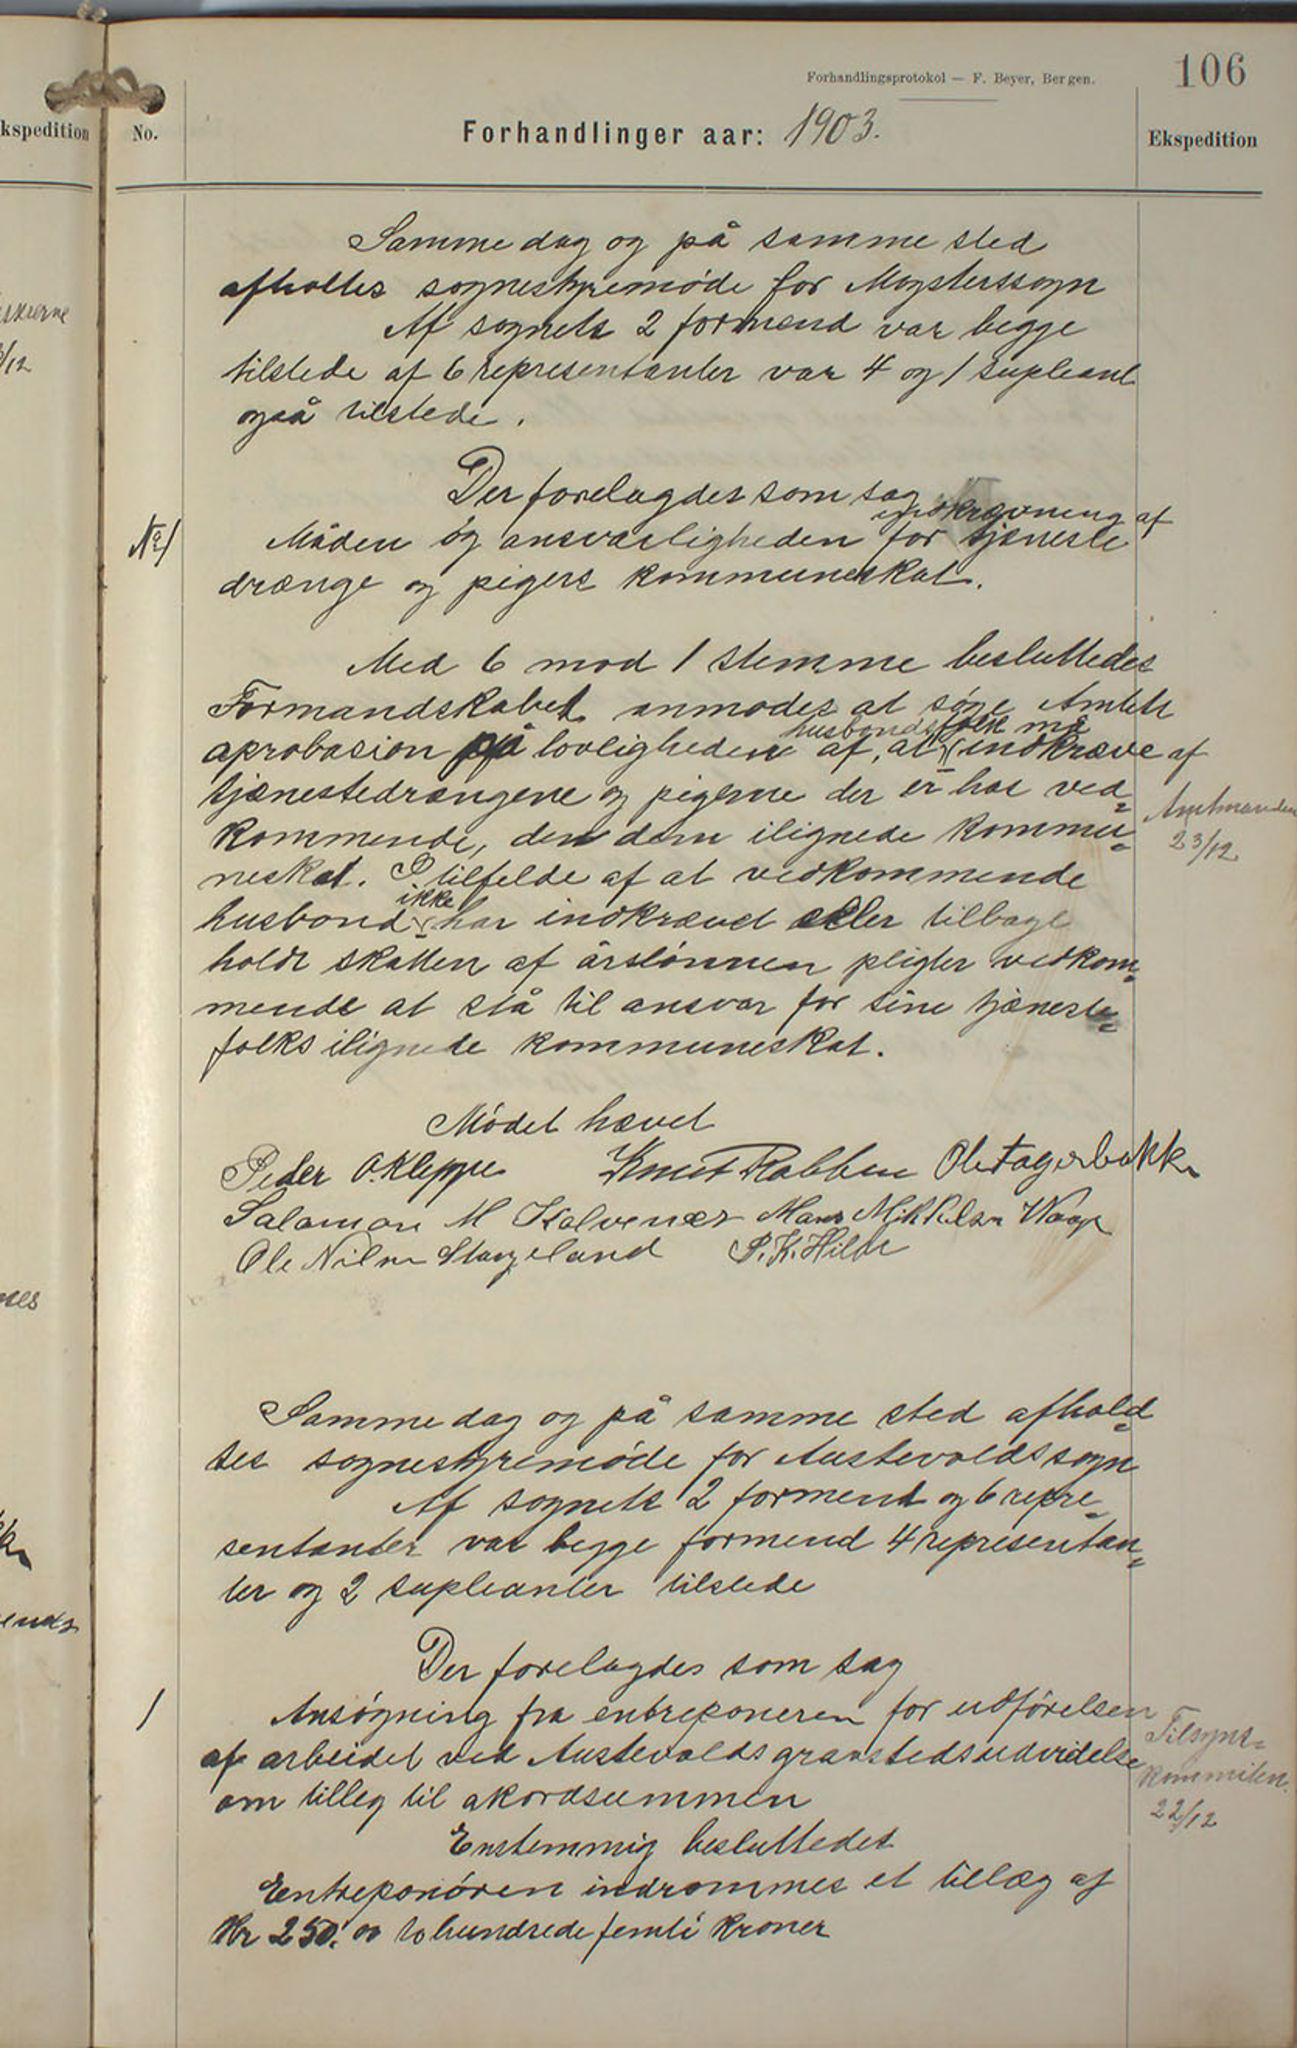 Forhandlingsprotokol — F. Beyer, Bergen.
106
kspedition
No.
Forhandlinger aar: 1903.
Ekspedition
Samme dag og på samme sted
afholtes sognestyremøde for Møgsterssogn
Af sognets 2 formænd var begge
tilstede af 6 representanter var 4 og 1 supleant
også tilstede.
Der forelagdes som sag
№ 1
indkrævning af
Måden og ansvarligheden for tjæneste
drænge og pigers kommuneskat.
Med 6 mod 1 stemme besluttedes
Formandskabet anmodes at søge Amtets
husbondsfolk må
aprobasion på lovligheden af, at indkræve af
tjænestedrængene og pigerne der er hos ved=
kommende, den dem ilignede kommu=
Amtmanden
23/12
neskat. I tilfelde af at vedkommende
ikke
husbond har indkrævet eller tilbage
holdt skatten af årslønnen pligter vedkom=
mende at stå til ansvar for sine tjæneste=
folks ilignede kommuneskat.
Mødet hævet
Peder O. Kleppe Knut Rabben Ole Fagerbakke
Salamon M Kalvenæs Mans Mikkelsen Waage
Ole Nilsen Stangeland P. K. Hilde
Samme dag og på samme sted afhold=
tes sognestyremøde for Austevolds sogn
Af sognets 2 formend og 6 repre=
sentanter var begge formend 4 representan=
ter og 2 supleanter tilstede
Der forelagdes som sag
1
Ansøgning fra entreponeren for udførelsen
af arbeidet ved Austevolds gravstedsudvidelse
om tilleg til akordsummen
Tilsyns=
kommiten.
22/12
Enstemmig besluttedes
Entreponøren indrømmes et tillæg af
Kr 250,00 to hundrede femti kroner